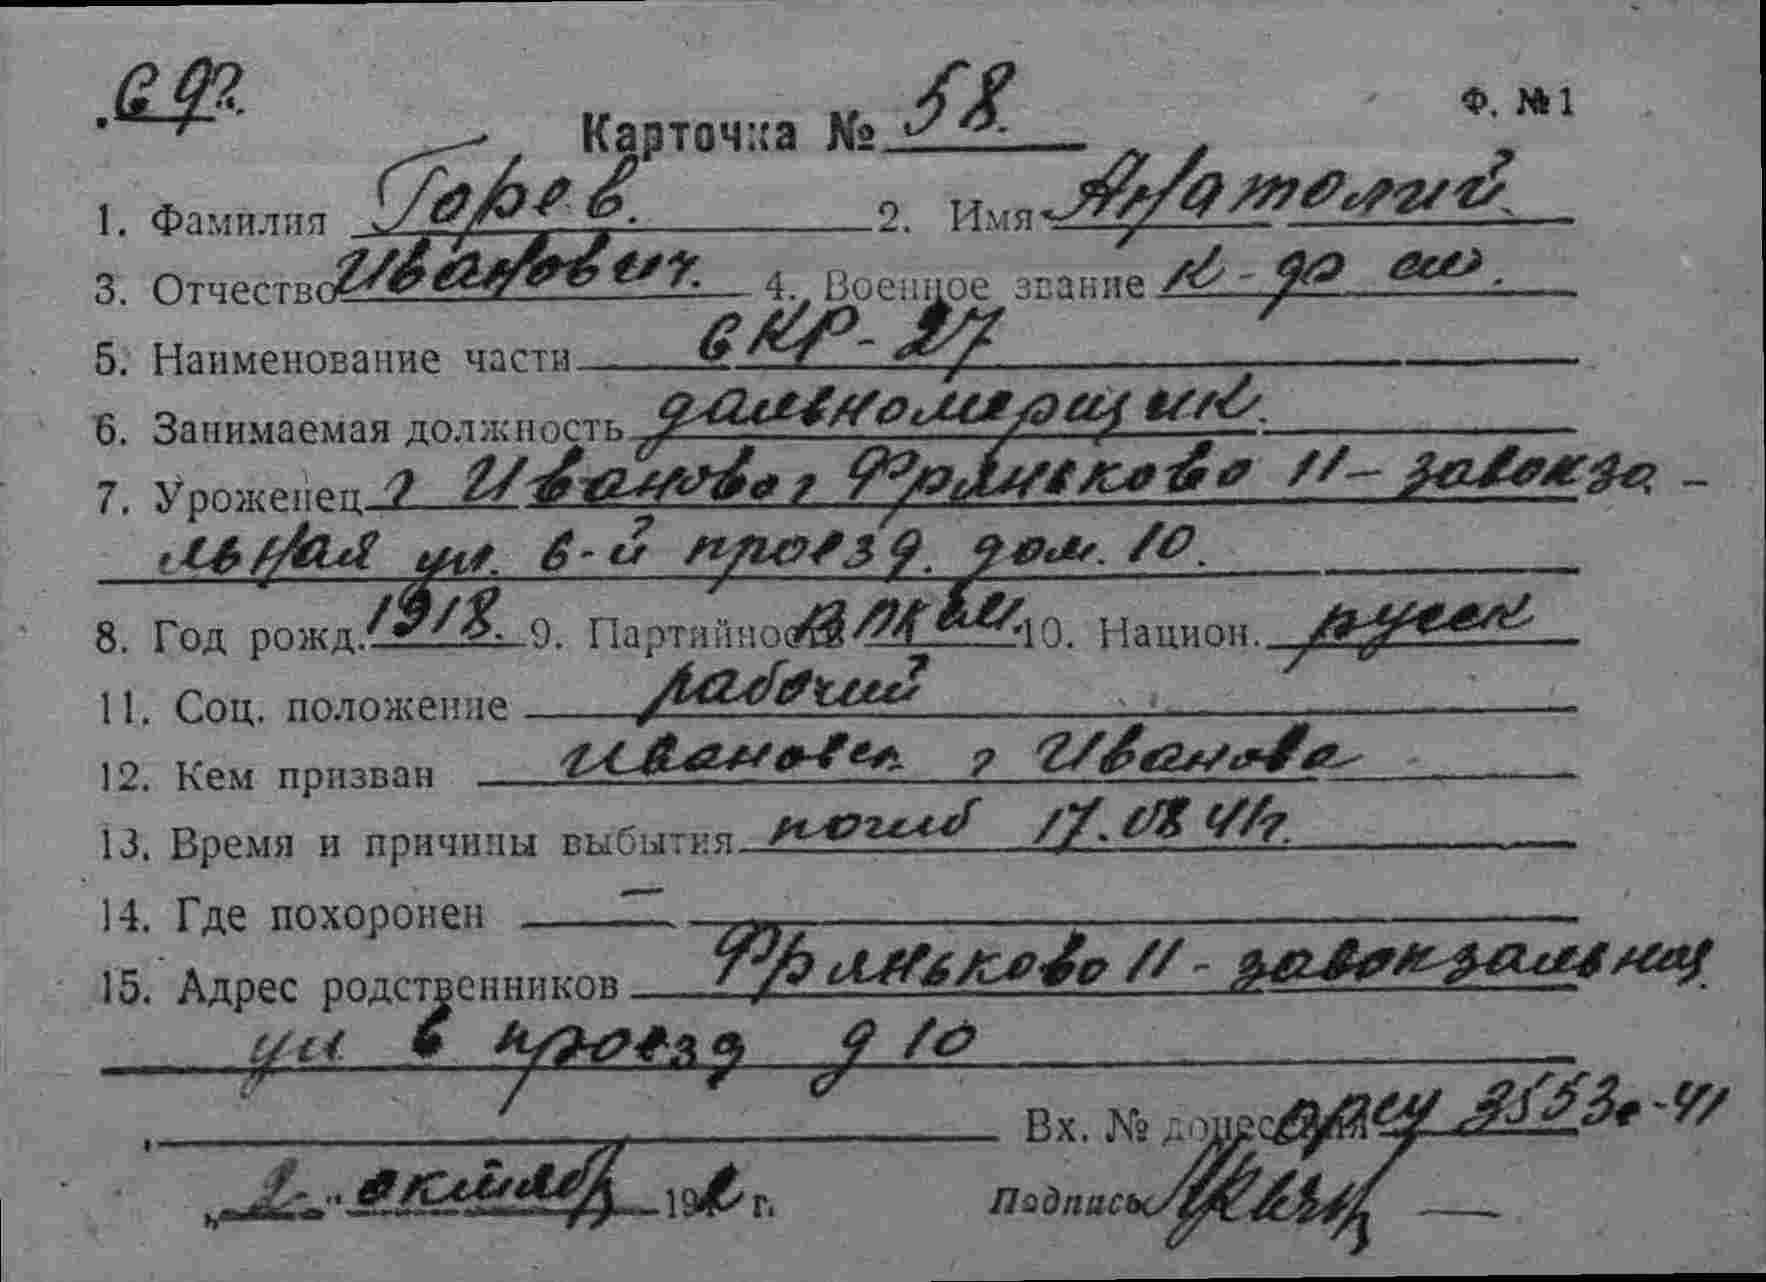 Ф. №1
Карточка № 58.
1. Фамилия Горев. 2. Имя Анатолий.
3. Отчество Иванович. 4. Военное звание к-ф
5. Наименование части СКР-27
6. Занимаемая должность дальномерщик.
7. Уроженец г Иваново г Фряньково 11-завокза-
льная ул. 6-й проезд. дом. 10.
8. Год рожд. 1918. 9. Партийность 10. Национ. русск
11. Соц. положение рабочий
12. Кем призван Ивановск г Иванова
13. Время и причины выбытия погиб 17.08 41г.
14. Где похоронен —
15. Адрес родственников Фряньково 11-завокзальная
ул 6 проезд д 10
Вх. № донесения орсу 3553с-41
„2“ октябр 194 г. Подпись